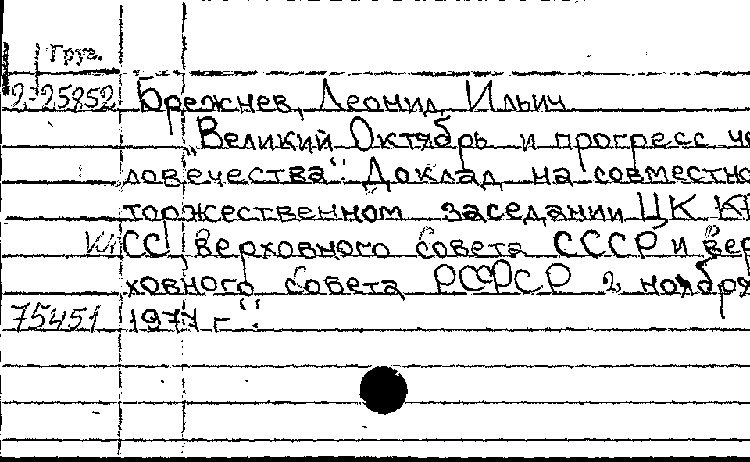 Груз.
2-25852 Брежнев, Леонид Ильич
"Великий Октябрь и прогресс че
ловечества": Доклад на совместно
торжественном заседании ЦК КП
СС верховного совета СССР и вер
ховного совета РСФСР 2 ноября
75451 1977 г.":